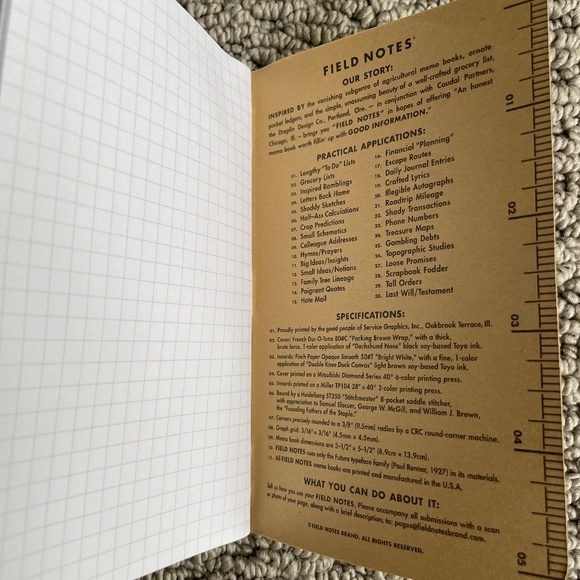 FIELD NOTES
OUR STORY:
INSPIRED BY the vanishing subgenre of agricultural memo books, ornate
pocket ledgers, and the simple, unassuming beauty of a well-crafted grocery list,
the Draplin Design Co., Portland, Ore. — in conjunction with Coudal Partners,
Chicago, Ill. — brings you "FIELD NOTES" in hopes of offering "An honest
memo book worth fillin' up with GOOD INFORMATION."
PRACTICAL APPLICATIONS:
01. Lengthy "To Do" Lists
02. Grocery Lists
03. Inspired Ramblings
04. Letters Back Home
05. Shoddy Sketches
06. Half-Ass Calculations
07. Crop Predictions
08. Small Schematics
09. Colleague Addresses
10. Hymns/Prayers
11. Big Ideas/Insights
12. Small Ideas/Notions
13. Family Tree Lineage
14. Poignant Quotes
15. Hate Mail
16. Financial "Planning"
17. Escape Routes
18. Daily Journal Entries
19. Crafted Lyrics
20. Illegible Autographs
21. Roadtrip Mileage
22. Shady Transactions
23. Phone Numbers
24. Treasure Maps
25. Gambling Debts
26. Topographic Studies
27. Loose Promises
28. Scrapbook Fodder
29. Tall Orders
30. Last Will/Testament
SPECIFICATIONS:
01. Proudly printed by the good people of Service Graphics, Inc., Oakbrook Terrace, Ill.
02. Cover: French Dur-O-Tone 80#C "Packing Brown Wrap," with a thick,
brute force, 1-color application of "Dachshund Nose" black soy-based Toyo ink.
03. Innards: Finch Paper Opaque Smooth 50#T "Bright White," with a fine, 1-color
application of "Double Knee Duck Canvas" light brown soy-based Toyo ink.
04. Cover printed on a Mitsubishi Diamond Series 40" 6-color printing press.
05. Innards printed on a Miller TP104 28" x 40" 2-color printing press.
06. Bound by a Heidelberg ST350 "Stitchmaster" 8-pocket saddle stitcher,
with appreciation to Samuel Slocum, George W. McGill, and William J. Brown,
the "Founding Fathers of the Staple."
07. Corners precisely rounded to a 3/8" (9.5mm) radius by a CRC round-corner machine.
08. Graph grid: 3/16" x 3/16" (4.5mm x 4.5mm).
09. Memo book dimensions are 3-1/2" x 5-1/2" (8.9cm x 13.9cm).
10. FIELD NOTES uses only the Futura typeface family (Paul Renner, 1927) in its materials.
11. All FIELD NOTES memo books are printed and manufactured in the U.S.A.
WHAT YOU CAN DO ABOUT IT:
Tell us how you use your FIELD NOTES. Please accompany all submissions with a scan
or photo of your page, along with a brief description, to: pages@fieldnotesbrand.com.
© FIELD NOTES BRAND, ALL RIGHTS RESERVED.
01
02
03
04
05